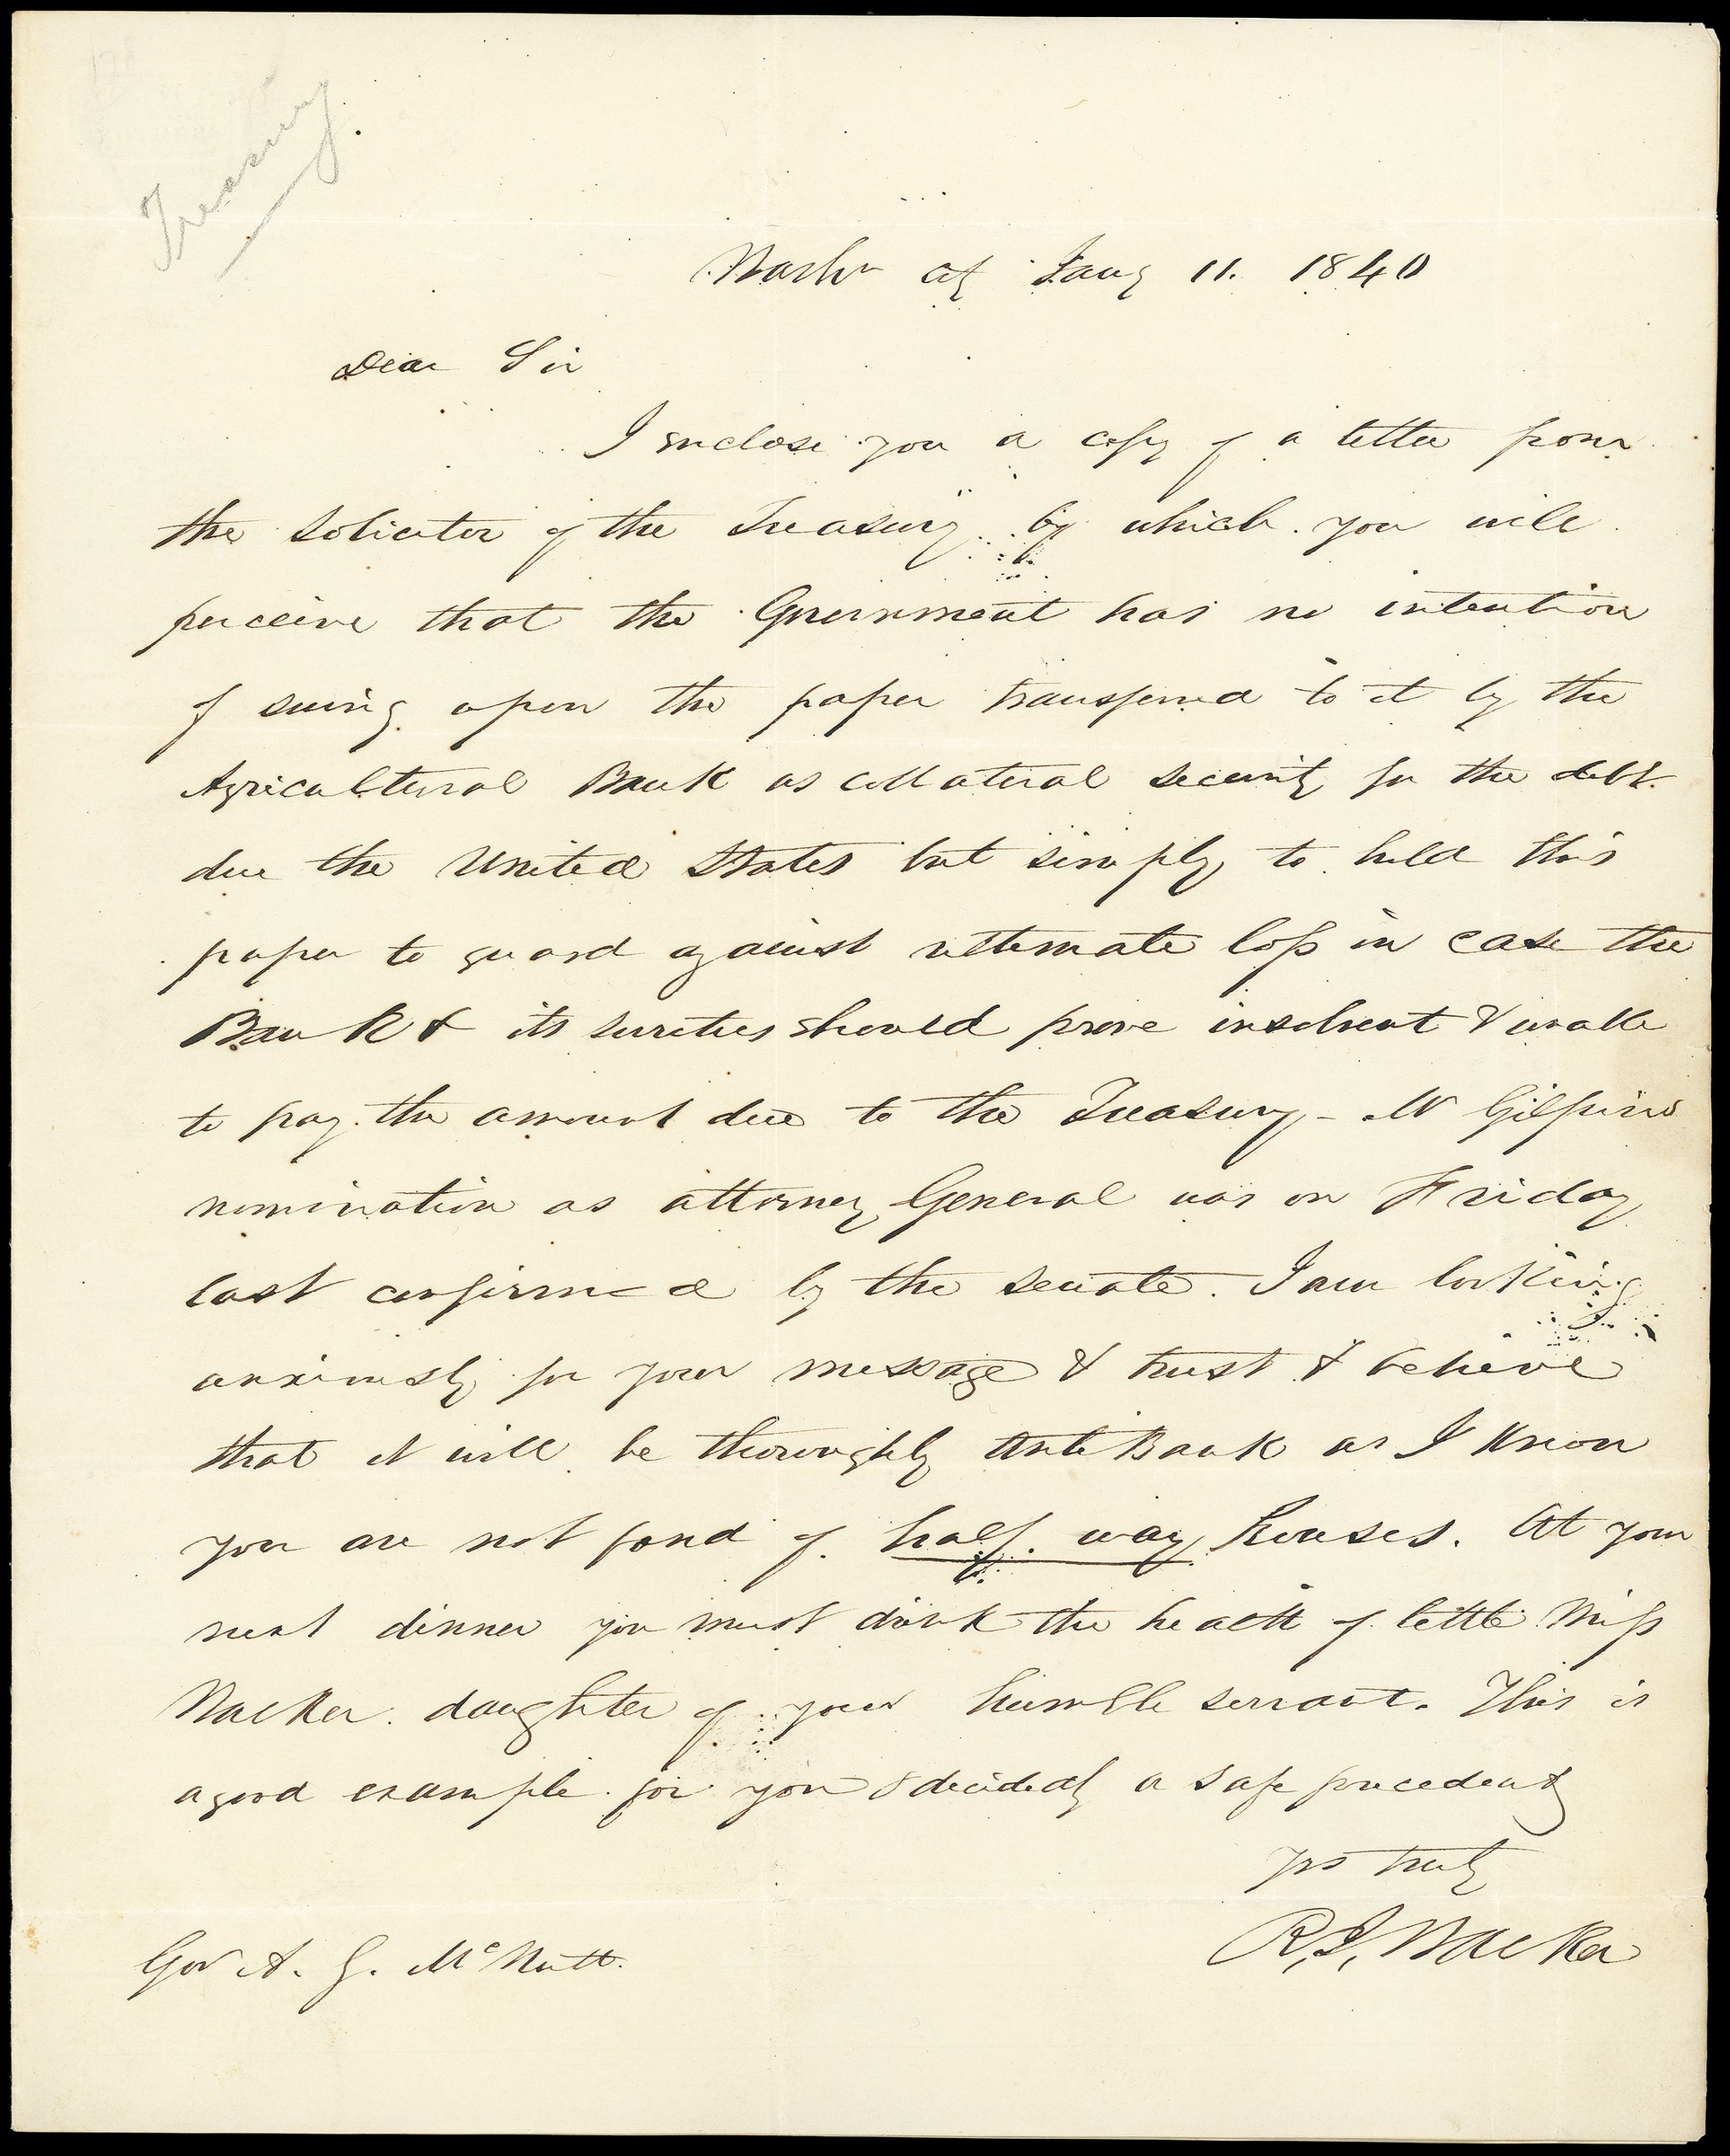 Treasury.
Washn cty Jany 11. 1840
Dear Sir
I enclose you a copy of a letter from
the Solicitor of the Treasury by which you will
perceive that the Government has no intention
of suing upon the paper transferred to it by the
Agricultural Bank as collateral security for the debt
due the United States but simply to hold this
paper to guard against ultimate loss in case the
Bank & its sureties should prove insolvent & unable
to pay the amount due to the Treasury - Mr Gilpins
nomination as attorney General was on Friday
last confirmed by the Senate. I am looking
anxiously for your message & trust & believe
that it will be thoroughly anti Bank as I know
you are not fond of half way houses. At your
next dinner you must drink the health of little Miss
Walker daughter of your humble servant. This is
a good example for you & decidedly a safe precedent
yrs truly
R. J. Walker
Gov A. G. McNutt.